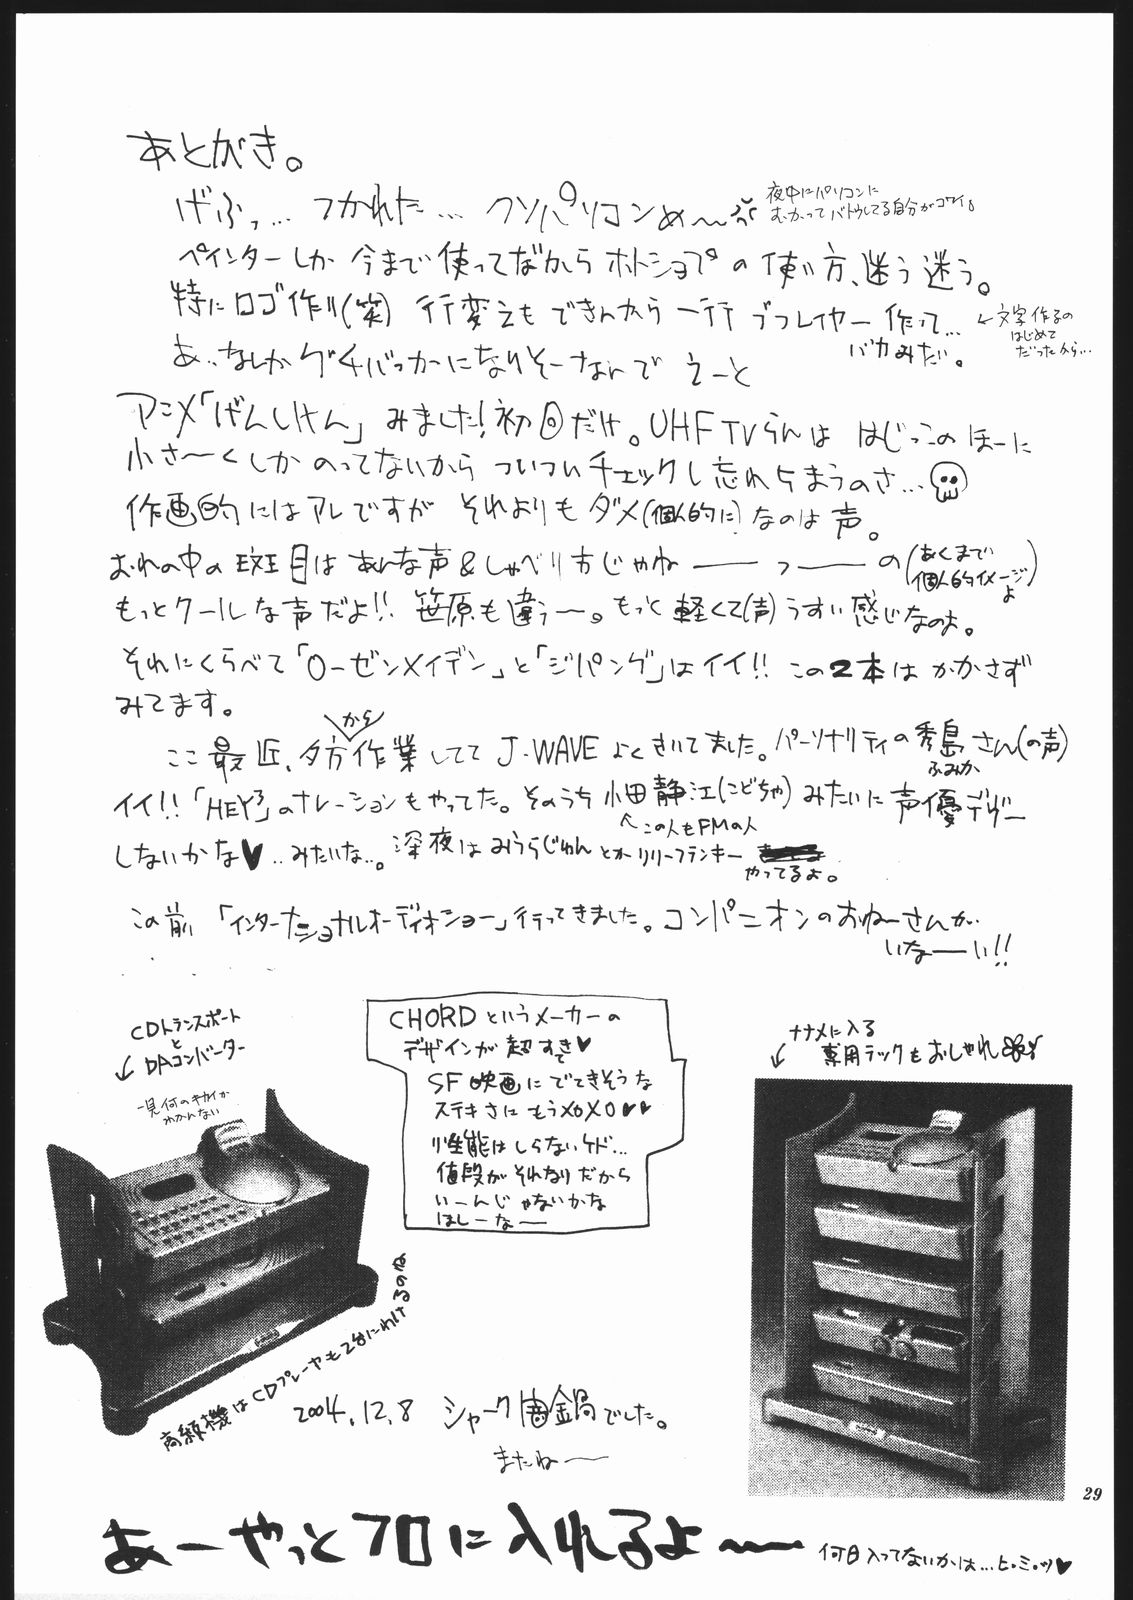 あとがき。
げふっ… つかれた… クソパソコンめ〜
夜中にパソコンに
むかってバトウしてる自分がコワイ。
ペインターしか今まで使ってなかったからホトショプの使い方、迷う迷う。
特にロゴ作り(笑) 行変えもできんから一行ずつレイヤー作って…
バカみたい。
←文字作るの
はじめて
だったから…
あ、なんかグチバッカーになりそーなんで えーと
アニメ「げんしけん」みました!初回だけ。UHF TVらんは はじっこのほーに
小さ〜くしかのってないから ついついチェックし忘れちまうのさ…
作画的にはアレですが それよりもダメ(個人的に)なのは声。
おれの中の斑目はあんな声&しゃべり方じゃねーっーの(あくまで
個人的イメージ
よ)
もっとクールな声だよ!! 笹原も違うー。もっと軽くて(声)うすい感じなのよ。
それにくらべて「ローゼンメイデン」と「ジパング」はイイ!! この2本はかかさず
みてます。
ここ最近、夕方から作業してて J-WAVE よくきいてました。パーソナリティの秀島さん(の声)
ふみか
イイ!!「HEY³」のナレーションもやってた。そのうち小田静江(こどちゃ)みたいに声優デヴュー
↖この人もFMの人
しないかな♥ ‥みたいな‥。深夜はみうらじゅんとかリリーフランキー
やってるよ。
この前「インターナショナルオーディオショー」行ってきました。コンパニオンのおねーさんが
いなーい!!
CDトランスポート
と
DAコンバーター
一見何のキカイか
わかんない
CHORDというメーカーの
デザインが超すてき♥
SF映画にでてきそうな
ステキさにもうメロメロ♥♥
性能はしらないケド…
値段がそれなりだから
いーんじゃないかな
ほしーなー
ナナメに入る
専用ラックもおしゃれ
高級機はCDプレーヤも2台にわけるのね
2004.12.8 シャーク歯鍋でした。
またねー
29
あーやっとフロに入れるよ〜
何日入ってないかは…ヒ・ミ・ツ♥